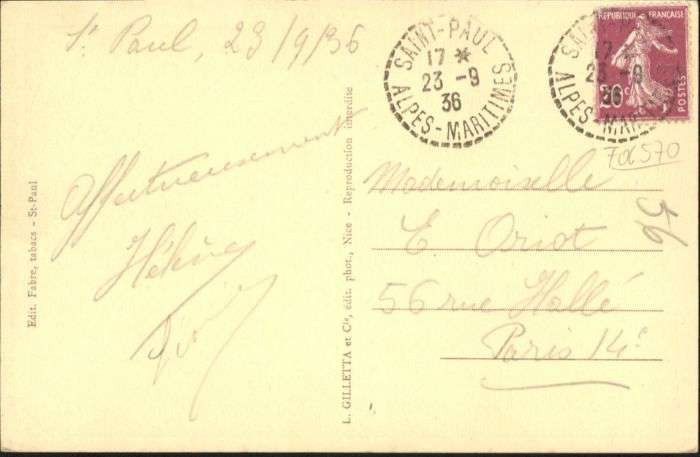 St Paul, 23/9/36
SAINT-PAUL
17 *
23 -9
36
ALPES-MARITIMES
SAINT-PAUL
17 *
23 -9
ALPES-MARITIMES
REPUBLIQUE FRANÇAISE
20c
POSTES
Affectueusement
Hélène
Mademoiselle
E. Oriot
56 rue Hallé
Paris 14e
56
Edit. Fabre, tabacs - St-Paul
L. GILLETTA et Cie, édit. phot., Nice - Reproduction interdite